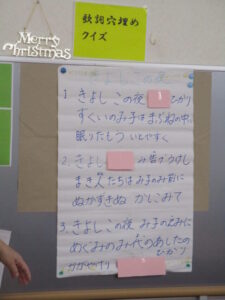 Merry
Christmas
歌詞穴埋め
クイズ
きよしこの夜
1. きよし この夜 1 ひかり
すくいのみ子は まぶねの中に
眠りたもう いとやすく
2. きよし み告げうけし
まき人たちは み子のみ前に
ぬかずきぬ かしこみて
3. きよし この夜 み子のえみに
めぐみのみ代の あしたの
ひかり
かがやけり